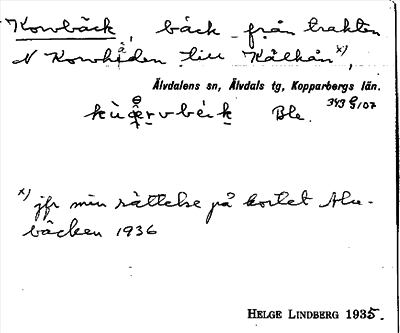 Korvbäck, bäck från trakten
N Korvhåden till Kälkån x),
Älvdalens sn, Älvdals tg, Kopparbergs län.
Ble. 343 G/07
x) jfr min rättelse på kortet Alu-
bäcken 1936
HELGE LINDBERG 1935.